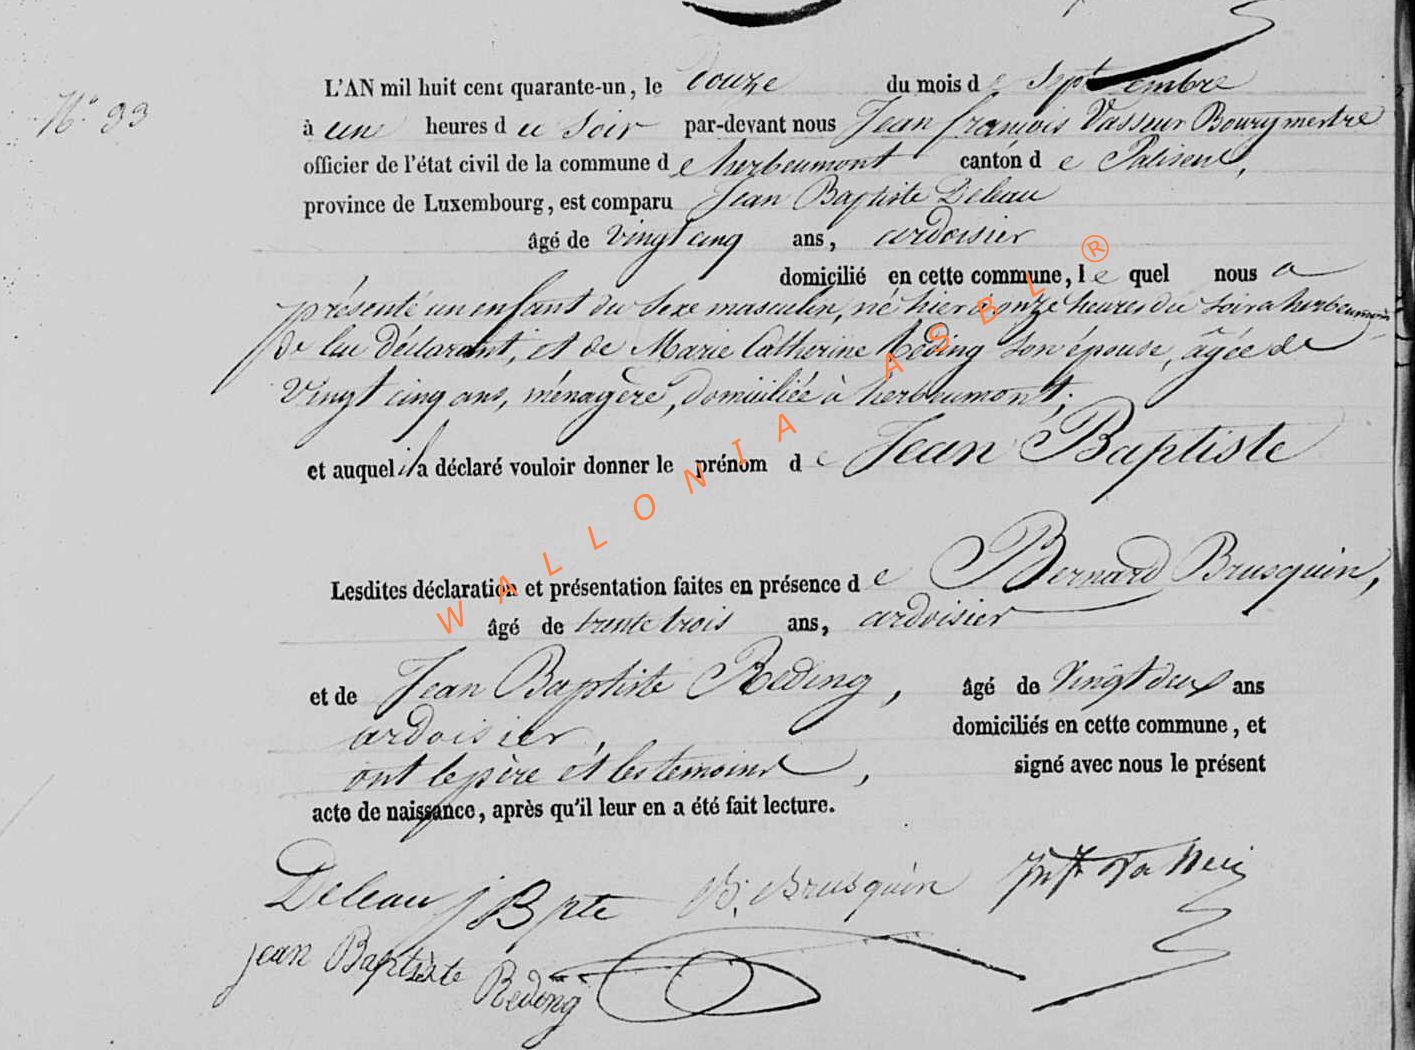 L'AN mil huit cent quarante-un, le douze du mois de Septembre
N° 93
à une heures du Soir par-devant nous Jean francois Vasseur Bourgmestre
officier de l'état civil de la commune de herbeumont canton de Paliseul,
province de Luxembourg, est comparu Jean Baptiste Deleau
âgé de vingt cinq ans, ardoisier
domicilié en cette commune, lequel nous a
présenté un enfant du Sexe masculin, né hier à onze heures du Soir à herbeumont
de lui Déclarant, et de Marie Catherine Reding Son épouse, âgée de
Vingt cinq ans, ménagère, domiciliée à herbeumont,
et auquel il a déclaré vouloir donner le prénom de Jean Baptiste
Lesdites déclaration et présentation faites en présence de Bernard Brusquin,
âgé de trente trois ans, ardoisier
et de Jean Baptiste Reding, âgé de Vingt deux ans
ardoisier, domiciliés en cette commune, et
ont le père et les temoins, signé avec nous le présent
acte de naissance, après qu'il leur en a été fait lecture.
Deleau j Bpte B. Brusquin
jean Baptiste Reding
WALLONIA ASBL ®